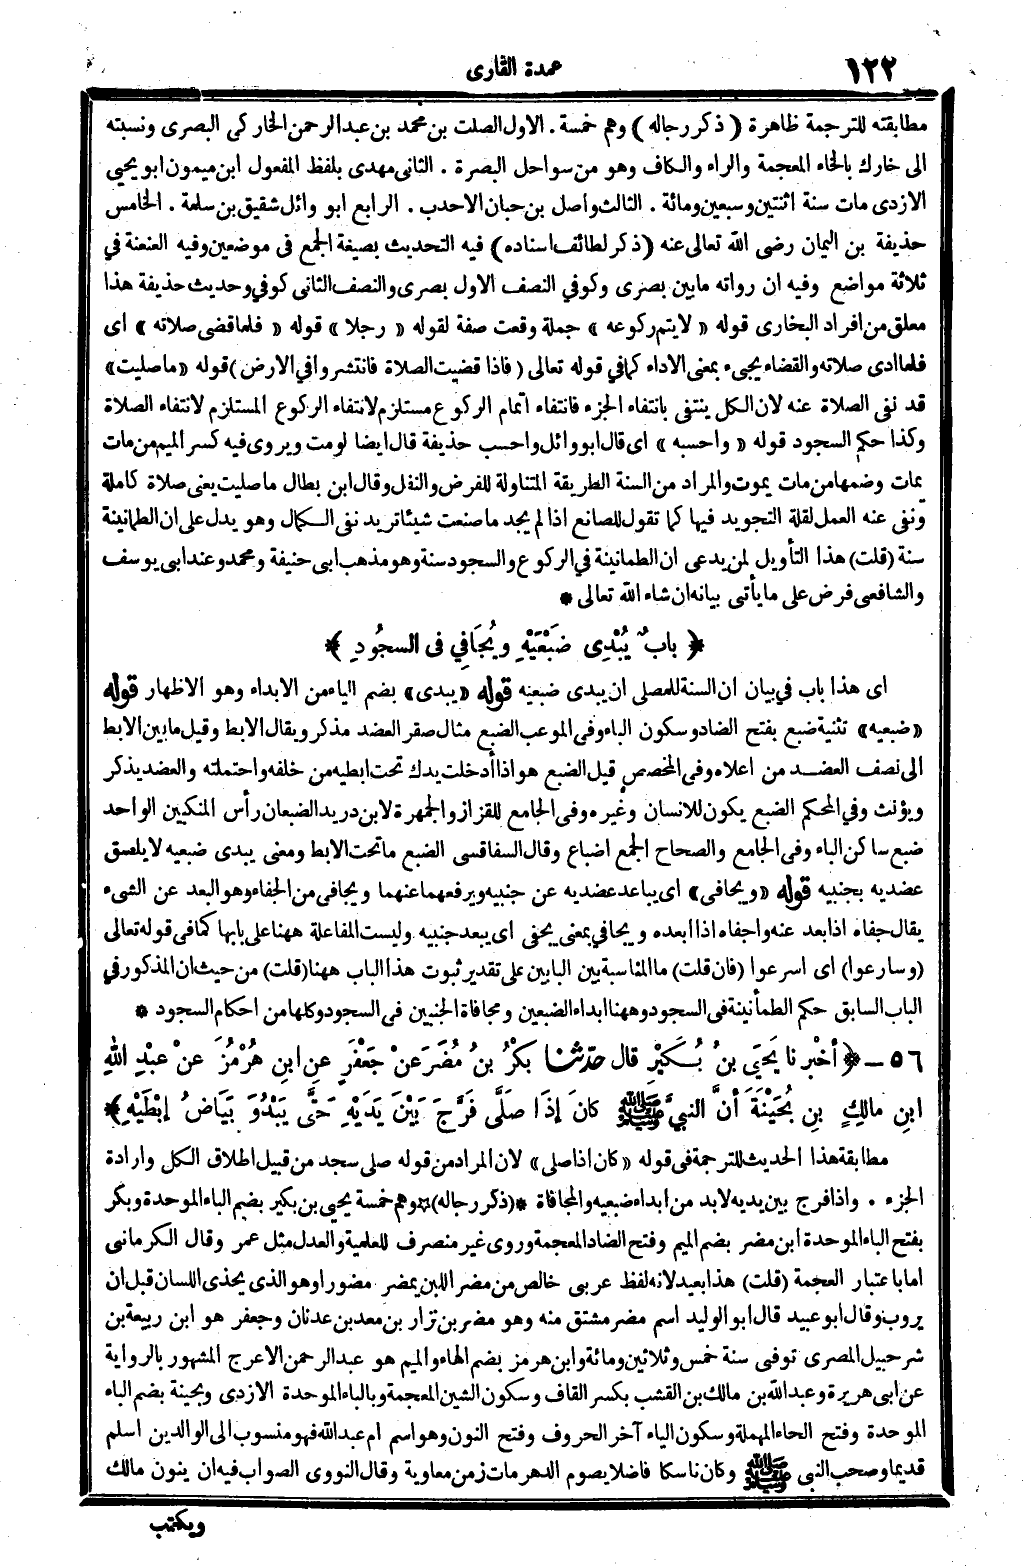 ١٢٢
عمدة القارى
مطابقته للترجمة ظاهرة ( ذكر رجاله ) وهم خمسة . الاول الصلت بن محمد بن عبد الرحمن الخاركى البصرى ونسبته
الى خارك بالخاء المعجمة والراء والكاف وهو من سواحل البصرة . الثانى مهدى بلفظ المفعول ابن ميمون ابو يحيى
الازدى مات سنة اثنتين وسبعين ومائة . الثالث واصل بن حبان الاحدب . الرابع ابو وائل شقيق بن سلمة . الخامس
حذيفة بن اليمان رضى الله تعالى عنه ( ذكر لطائف اسناده ) فيه التحديث بصيغة الجمع فى موضعين وفيه العنعنة في
ثلاثة مواضع وفيه ان رواته مابين بصرى وكوفي النصف الاول بصرى والنصف الثانى كوفي وحديث حذيفة هذا
معلق من افراد البخارى قوله « لايتم ركوعه » جملة وقعت صفة لقوله « رجلا » قوله « فلما قضى صلاته » اى
فلما ادى صلاته والقضاء يجىء بمعنى الاداء كما في قوله تعالى ( فاذا قضيت الصلاة فانتشروا في الارض ) قوله « ماصليت »
قد نفى الصلاة عنه لان الكل ينتفى بانتفاء الجزء فانتفاء اتمام الركوع مستلزم لانتفاء الركوع المستلزم لانتفاء الصلاة
وكذا حكم السجود قوله « واحسبه » اى قال ابو وائل واحسب حذيفة قال ايضا لومت ويروى فيه كسر الميم من مات
يمات وضمها من مات يموت والمراد من السنة الطريقة المتناولة للفرض والنفل وقال ابن بطال ماصليت يعنى صلاة كاملة
ونفى عنه العمل لقلة التجويد فيها كما تقول للصانع اذا لم يجد ماصنعت شيئا تريد نفى الكمال وهو يدل على ان الطمانينة
سنة ( قلت ) هذا التأويل لمن يدعى ان الطمانينة في الركوع والسجود سنة وهو مذهب ابى حنيفة ومحمد وعند ابى يوسف
والشافعى فرض على ما يأتى بيانه ان شاء الله تعالى *
﴿ بابٌ يُبْدِى ضَبْعَيْهِ ويُجَافِي فى السجُودِ ﴾
اى هذا باب في بيان ان السنة للمصلى ان يبدى ضبعيه قوله «يبدى» بضم الياء من الابداء وهو الاظهار قوله
«ضبعيه» تثنية ضبع بفتح الضاد وسكون الباء وفى الموعب الضبع مثال صقر العضد مذكر ويقال الابط وقيل مابين الابط
الى نصف العضد من اعلاه وفى المخصص قيل الضبع هو اذا أدخلت يدك تحت ابطيه من خلفه واحتملته والعضد يذكر
ويؤنث وفي المحكم الضبع يكون للانسان وغيره وفى الجامع للقزاز والجمهرة لابن دريد الضبعان رأس المنكبين الواحد
ضبع ساكن الباء وفى الجامع والصحاح الجمع اضباع وقال السفاقسى الضبع ماتحت الابط ومعنى يبدى ضبعيه لايلصق
عضديه بجنبيه قوله «ويجافى» اى يباعد عضديه عن جنبيه ويرفعهما عنهما ويجافى من الجفاء وهو البعد عن الشىء
يقال جفاه اذا بعد عنه واجفاه اذا ابعده ويجافي بمعنى يجفى اى يبعد جنبيه وليست المفاعلة ههنا على بابها كما فى قوله تعالى
(وسارعوا) اى اسرعوا (فان قلت) ما المناسبة بين البابين على تقدير ثبوت هذا الباب ههنا (قلت) من حيث ان المذكور في
الباب السابق حكم الطمأنينة فى السجود وههنا ابداء الضبعين ومجافاة الجنبين فى السجود وكلها من احكام السجود *
٥٦ - ﴿ أخْبرنا يَحْيَى بنُ بُكَيْرٍ قال حدّثنا بَكْرُ بنُ مُضَرَ عَنْ جَعْفَرٍ عنِ ابنِ هُرْمُزَ عنْ عبْدِ اللهِ
ابنِ مالِكٍ بنِ بُحَيْنَةَ أنَّ النبيَّ ﷺ كانَ إذَا صَلَّى فَرَّجَ بَيْنَ يَدَيْهِ حَتَّى يَبْدُوَ بَيَاضُ إبْطَيْهِ ﴾
مطابقة هذا الحديث للترجمة فى قوله «كان اذا صلى» لان المراد من قوله صلى سجد من قبيل اطلاق الكل وارادة
الجزء . واذا فرج بين يديه لابد من ابداء ضبعيه والمجافاة *( ذكر رجاله )* وهم خمسة يحيى بن بكير بضم الباء الموحدة وبكر
بفتح الباء الموحدة ابن مضر بضم الميم وفتح الضاد المعجمة وروى غير منصرف للعلمية والعدل مثل عمر وقال الكرمانى
اما باعتبار العجمة (قلت) هذا بعيد لانه لفظ عربى خالص من مضر اللبن يمضر مضورا وهو الذى يحذى اللسان قبل ان
يروب وقال ابو عبيد قال ابو الوليد اسم مضر مشتق منه وهو مضر بن نزار بن معد بن عدنان وجعفر هو ابن ربيعة بن
شرحبيل المصرى توفى سنة خمس وثلاثين ومائة وابن هرمز بضم الهاء والميم هو عبد الرحمن الاعرج المشهور بالرواية
عن ابى هريرة وعبد الله بن مالك بن القشب بكسر القاف وسكون الشين المعجمة وبالباء الموحدة الازدى وبحينة بضم الباء
الموحدة وفتح الحاء المهملة وسكون الياء آخر الحروف وفتح النون وهو اسم ام عبد الله فهو منسوب الى الوالدين اسلم
قديما وصحب النبى ﷺ وكان ناسكا فاضلا يصوم الدهر مات زمن معاوية وقال النووى الصواب فيه ان ينون مالك
ويكتب